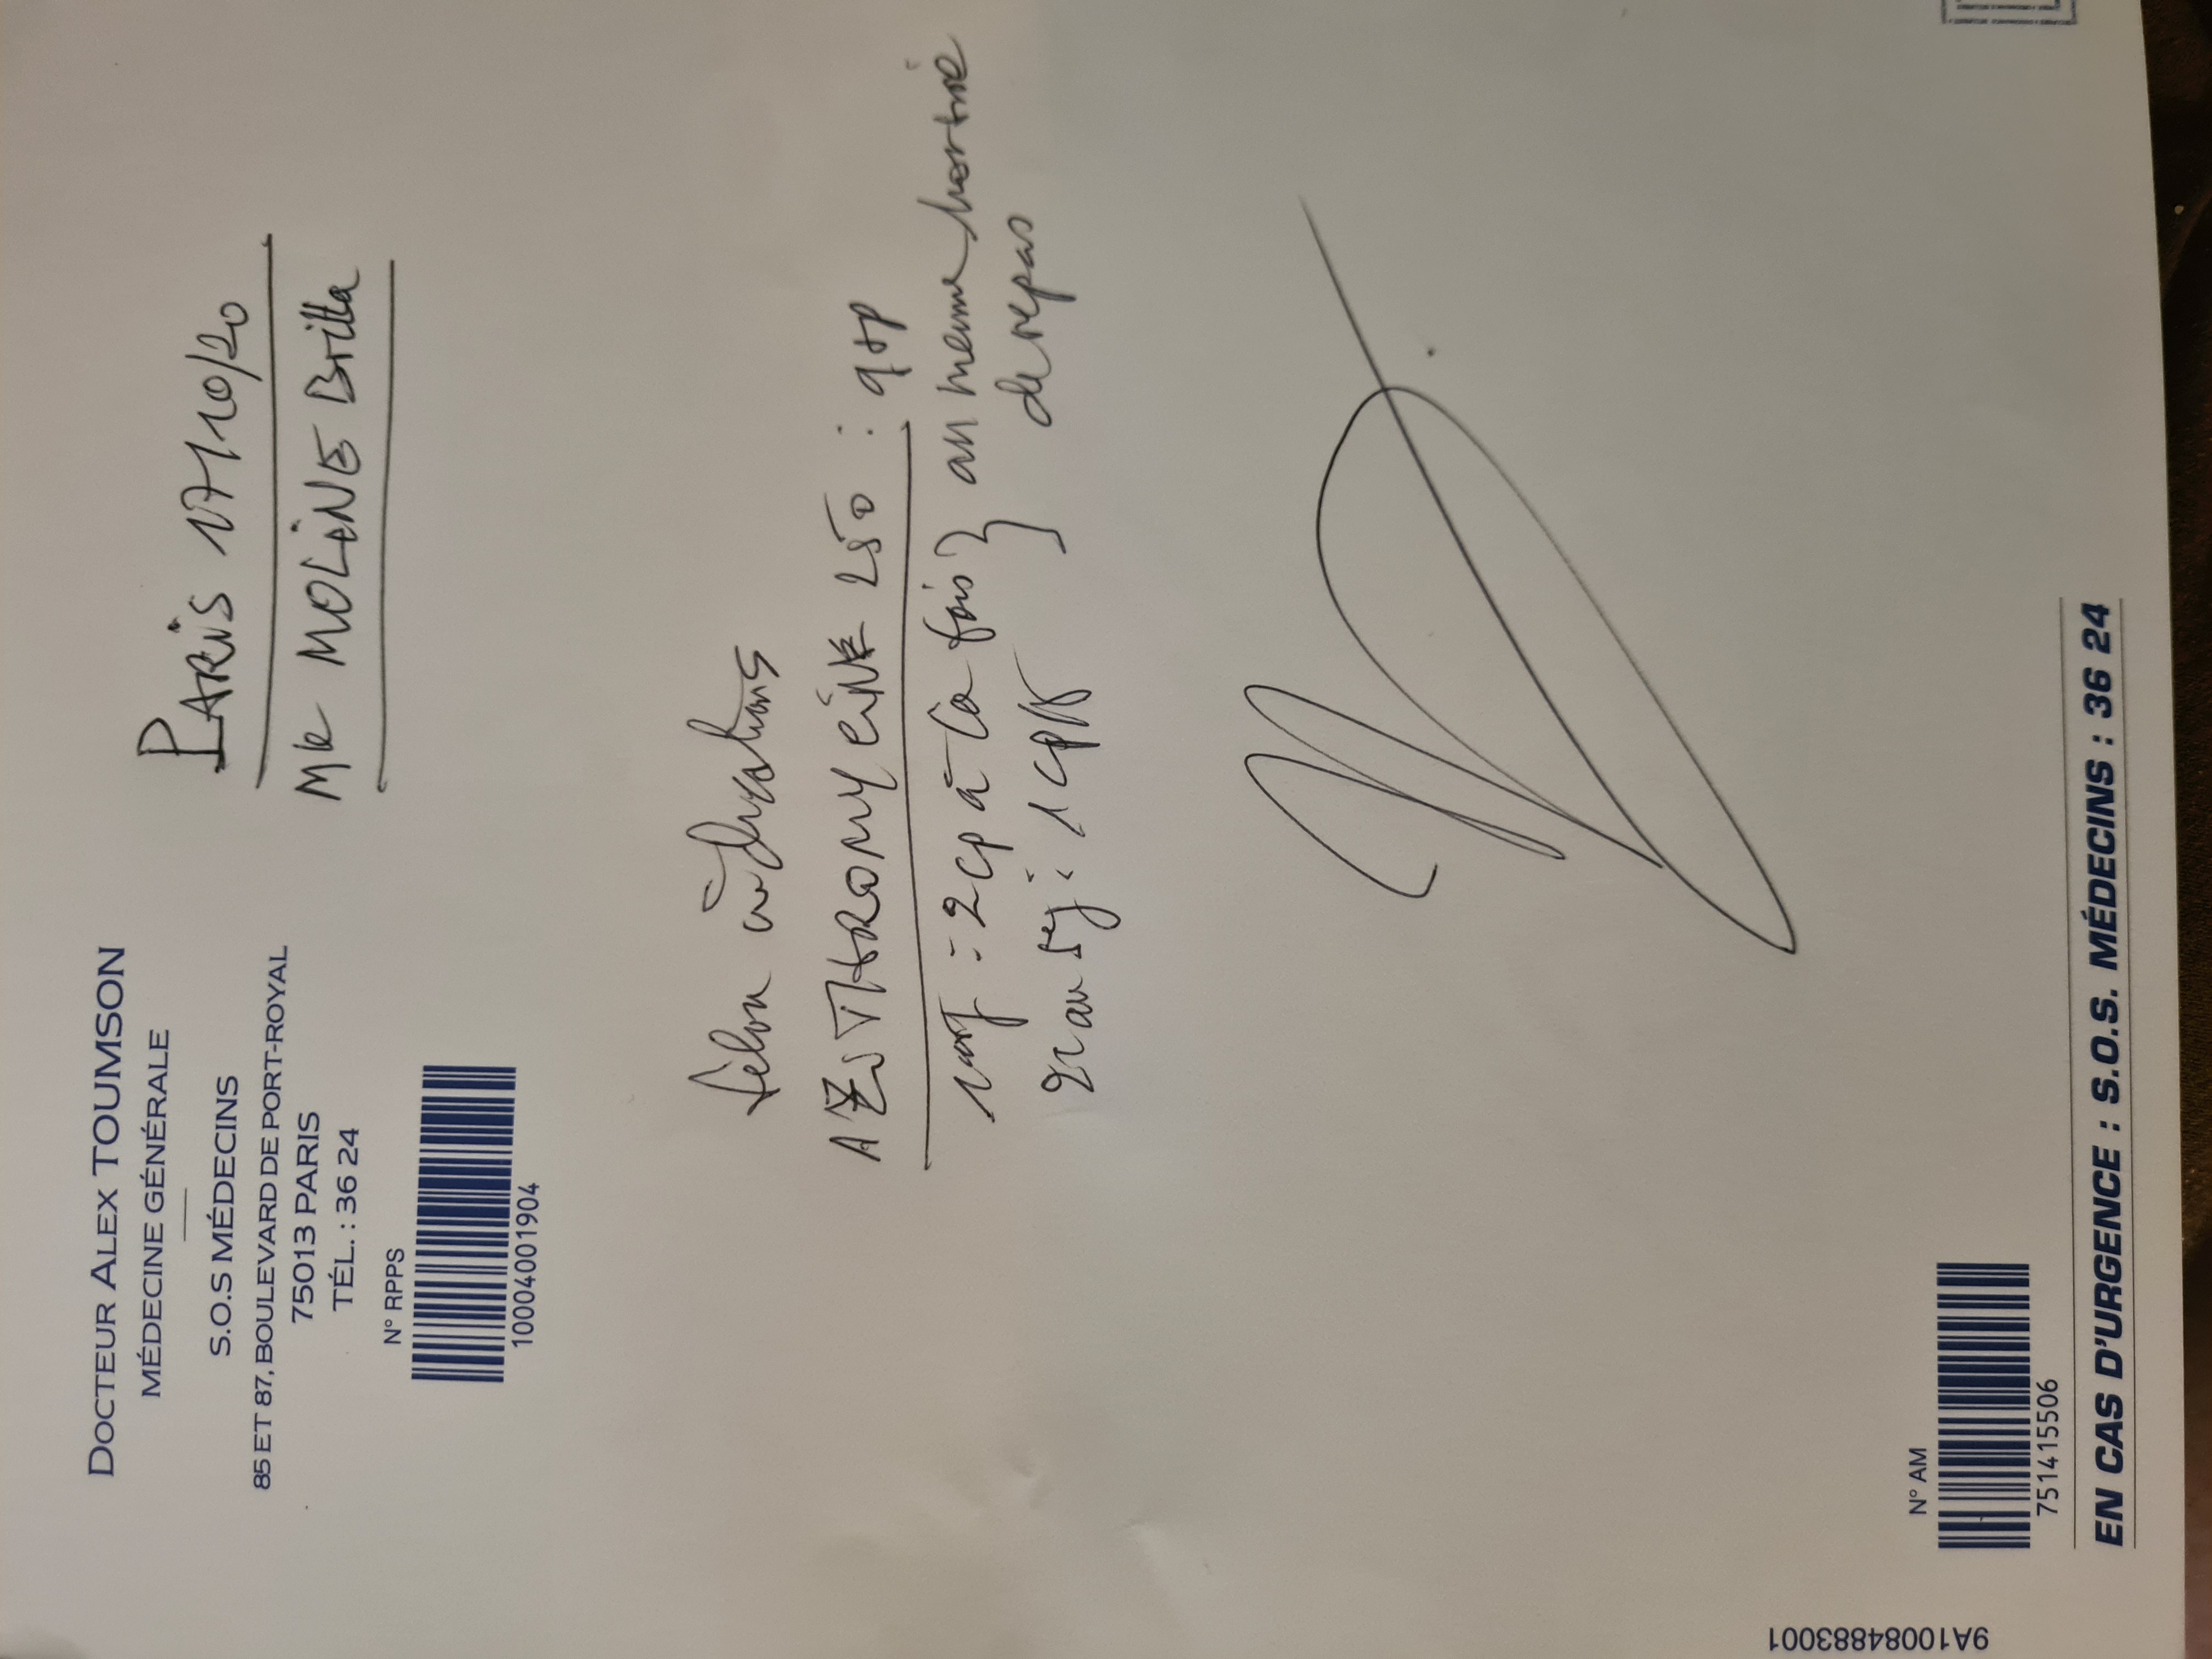 DOCTEUR ALEX TOUMSON
MÉDECINE GÉNÉRALE
S.O.S MÉDECINS
85 ET 87, BOULEVARD DE PORT-ROYAL
75013 PARIS
TÉL. : 36 24
N° RPPS
10004001904
PARIS 17/10/20
Mlle MOLINE Britta
Selon indications
AZITHROMYCINE 250 : qsp
1er j = 2 cp à la fois } au même horaire
de repas
2e au 5e j : 1 cp/j
9A10084883001
N° AM
751415506
EN CAS D'URGENCE : S.O.S. MÉDECINS : 36 24